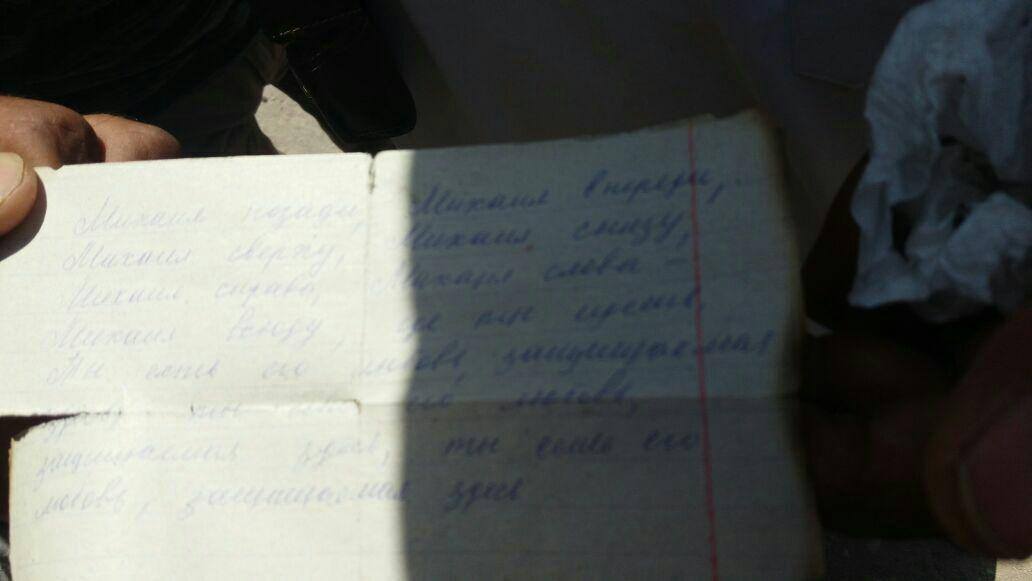 Михаил позади, Михаил впереди,
Михаил сверху, Михаил снизу,
Михаил справа, Михаил слева –
Михаил всюду, где ты идешь,
Ты есть его любовь, защищаемая
здесь, ты есть его любовь,
защищаемая здесь, ты есть его
любовь, защищаемая здесь